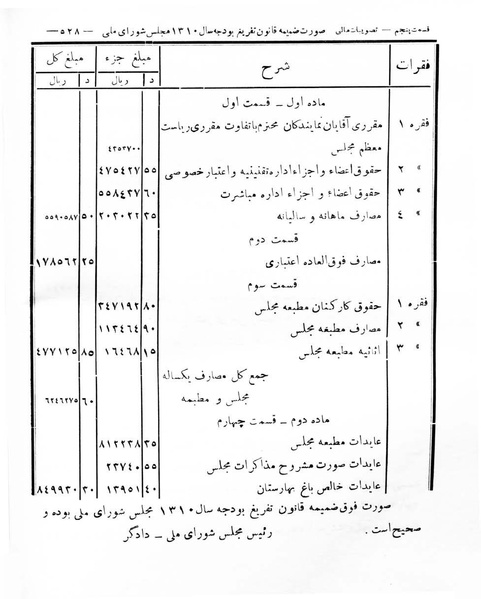 قسمت پنجم — تصویبات مالی    صورت ضمیمه قانون تفریغ بودجه سال ۱۳۱۰ مجلس شورای ملی    — ۵۲۸ —
فقرات    شرح    مبلغ جزء    مبلغ کل
ریال    د    ریال    د
ماده اول – قسمت اول
فقره ۱    مقرری آقایان نمایندگان محترم باتفاوت مقرری ریاست
معظم مجلس    ۴۳۵۳۷۰۰
» ۲    حقوق اعضاء و اجزاء اداره تقنینیه و اعتبار خصوصی    ۴۷۵۴۲۷    ۵۵
» ۳    حقوق اعضاء و اجزاء اداره مباشرت    ۵۵۸۴۳۷    ۶۰
» ۴    مصارف ماهانه و سالیانه    ۲۰۳۰۲۲    ۳۵    ۵۵۹۰۵۸۷    ۵۰
قسمت دوم
مصارف فوق‌العاده اعتباری    ۱۷۸۵۶۲    ۲۵
قسمت سوم
فقره ۱    حقوق کارکنان مطبعه مجلس    ۳۴۷۱۹۲    ۸۰
» ۲    مصارف مطبعه مجلس    ۱۱۳۴۶۴    ۹۰
» ۳    اثاثیه مطبعه مجلس    ۱۶۴۶۸    ۱۵    ۴۷۷۱۲۵    ۸۵
جمع کل مصارف یکساله
مجلس و مطبعه    ۶۲۴۶۲۷۵    ۶۰
ماده دوم – قسمت چهارم
عایدات مطبعه مجلس    ۸۱۲۲۳۸    ۳۵
عایدات صورت مشروح مذاکرات مجلس    ۲۳۷۴۰    ۵۵
عایدات خالص باغ بهارستان    ۱۳۹۵۱    ۴۰    ۸۴۹۹۳۰    ۳۰
صورت فوق ضمیمه قانون تفریغ بودجه سال ۱۳۱۰ مجلس شورای ملی بوده و
صحیح است.    رئیس مجلس شورای ملی – دادگر